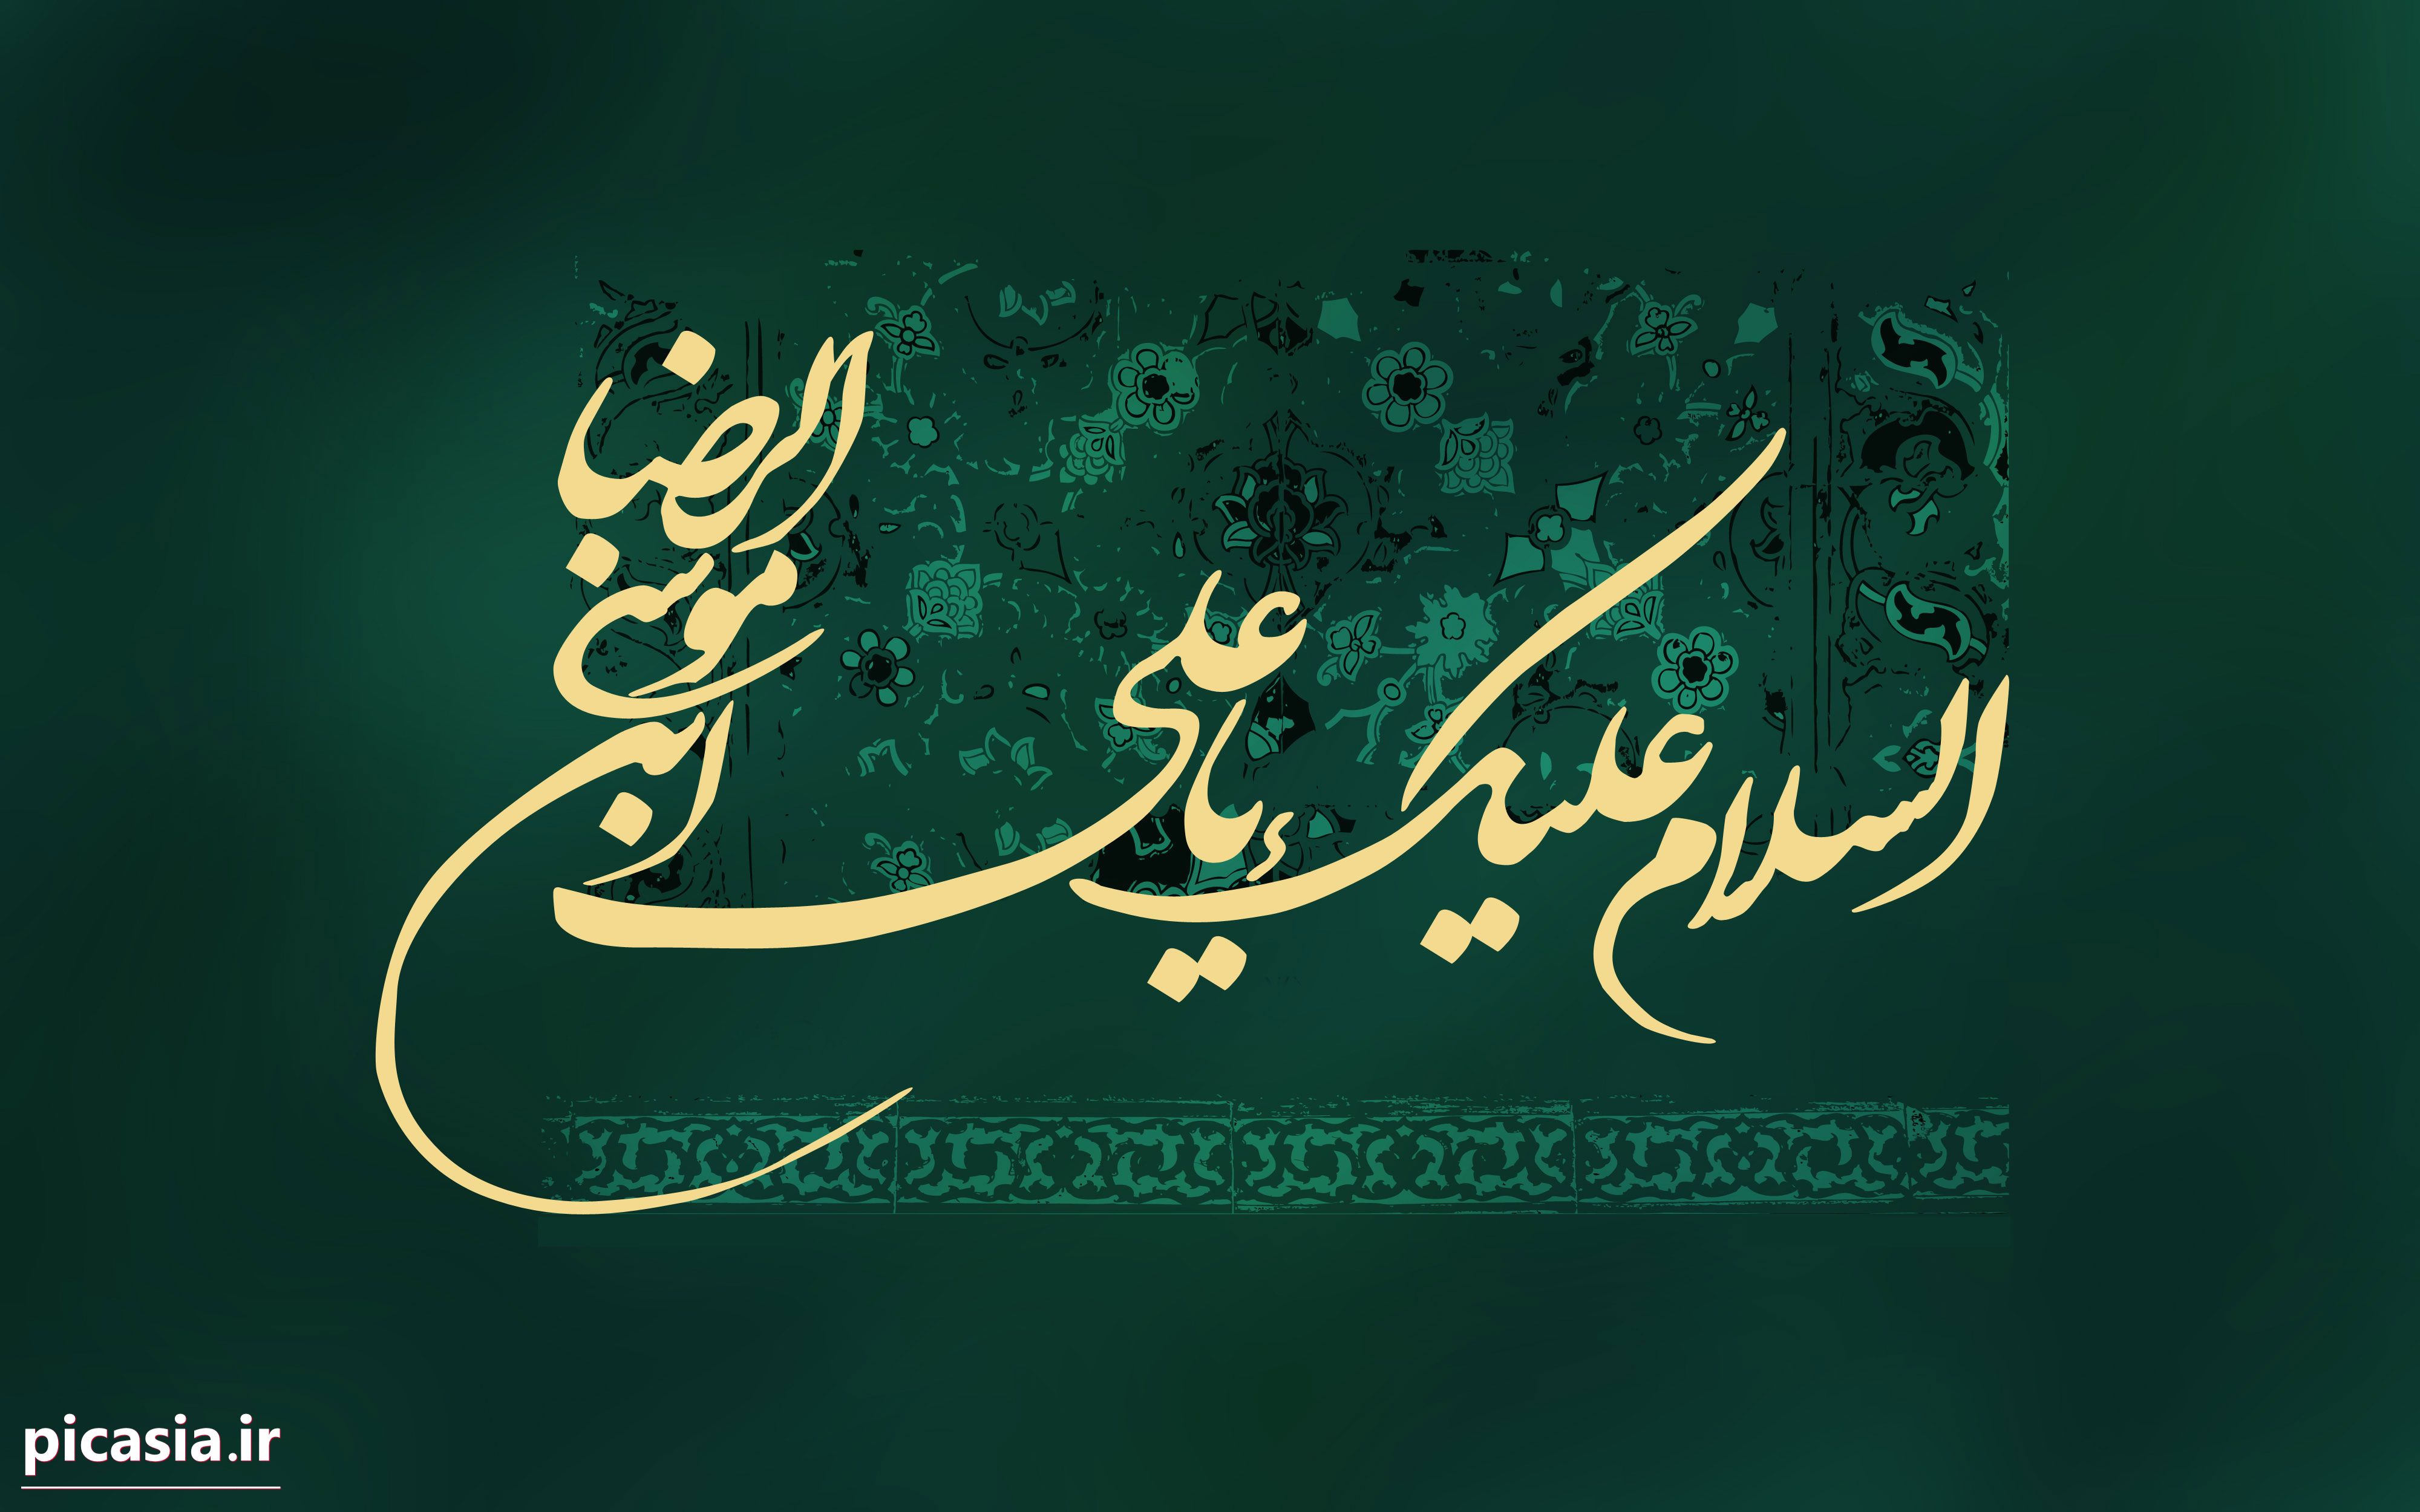 السلام علیک یا علی ابن موسی الرضا
picasia.ir